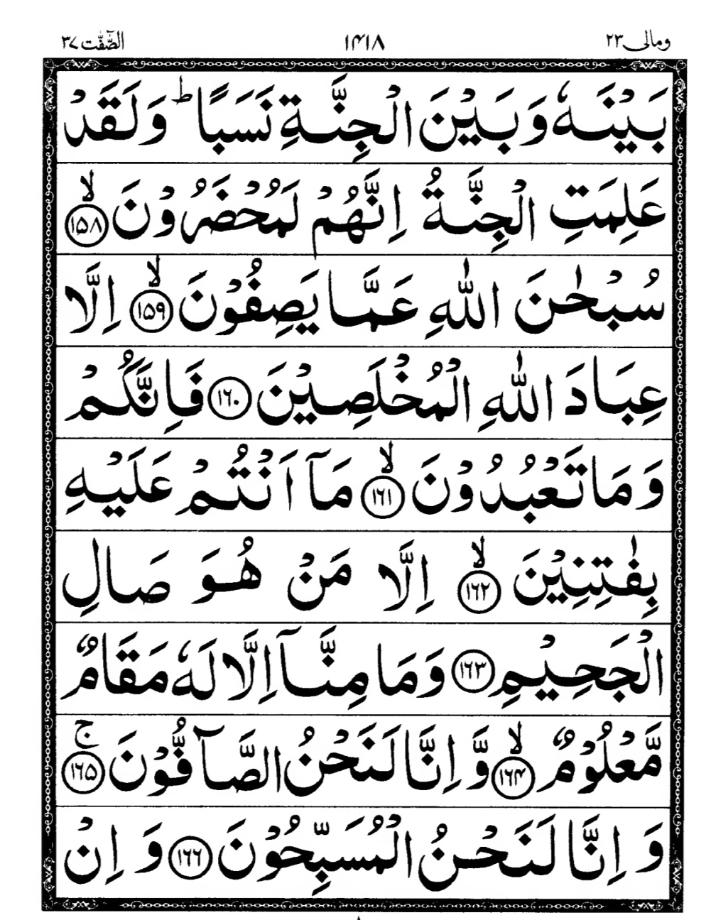 ومالی ٢٣ ١٤١٨ الصّٰٓفّٰت ٣٧
بَیْنَهٗ وَ بَیْنَ الْجِنَّةِ نَسَبًا ؕ وَ لَقَدْ
عَلِمَتِ الْجِنَّةُ اِنَّهُمْ لَمُحْضَرُوْنَ ۙ﴿۱۵۸﴾
سُبْحٰنَ اللّٰهِ عَمَّا یَصِفُوْنَ ۙ﴿۱۵۹﴾ اِلَّا
عِبَادَ اللّٰهِ الْمُخْلَصِیْنَ ﴿۱۶۰﴾ فَاِنَّكُمْ
وَ مَا تَعْبُدُوْنَ ۙ﴿۱۶۱﴾ مَاۤ اَنْتُمْ عَلَیْهِ
بِفٰتِنِیْنَ ۙ﴿۱۶۲﴾ اِلَّا مَنْ هُوَ صَالِ
الْجَحِیْمِ ﴿۱۶۳﴾ وَ مَا مِنَّاۤ اِلَّا لَهٗ مَقَامٌ
مَّعْلُوْمٌ ۙ﴿۱۶۴﴾ وَّ اِنَّا لَنَحْنُ الصَّآفُّوْنَ ۚ﴿۱۶۵﴾
وَ اِنَّا لَنَحْنُ الْمُسَبِّحُوْنَ ﴿۱۶۶﴾ وَ اِنْ